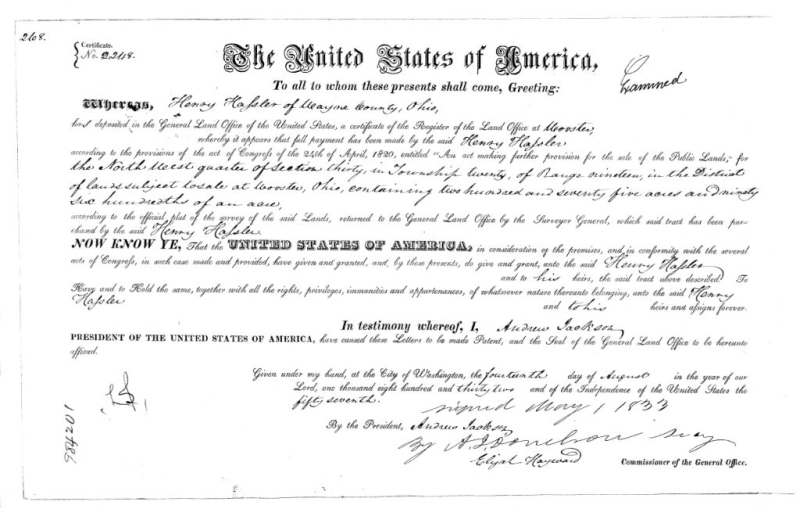 268.
Certificate.
No. 2268.
The United States of America,
Examined
To all to whom these presents shall come, Greeting:
Whereas, Henry Hassler of Wayne County, Ohio,
has deposited in the General Land Office of the United States, a certificate of the Register of the Land Office at Wooster,
whereby it appears that full payment has been made by the said Henry Hassler
according to the provisions of the act of Congress of the 24th of April, 1820, entitled "An act making further provision for the sale of the Public Lands;" for
the North West quarter of Section thirty, in Township twenty, of Range nineteen, in the District
of lands subject to sale at Wooster, Ohio, containing two hundred and seventy five acres and ninety
six hundredths of an acre,
according to the official plat of the survey of the said Lands, returned to the General Land Office by the Surveyor General, which said tract has been pur-
chased by the said Henry Hassler
NOW KNOW YE, That the UNITED STATES OF AMERICA, in consideration of the premises, and in conformity with the several
acts of Congress, in such case made and provided, have given and granted, and, by these presents, do give and grant, unto the said Henry Hassler
and to his heirs, the said tract above described: To
Have and to Hold the same, together with all the rights, privileges, immunities and appurtenances, of whatsoever nature thereunto belonging, unto the said Henry
Hassler and to his heirs and assigns forever.
In testimony whereof, I, Andrew Jackson
PRESIDENT OF THE UNITED STATES OF AMERICA, have caused these Letters to be made Patent, and the Seal of the General Land Office to be hereunto
affixed.
Given under my hand, at the City of Washington, the fourteenth day of August in the year of our
Lord, one thousand eight hundred and thirty two and of the Independence of the United States the
fifty seventh.
signed May 1 1833
By the President, Andrew Jackson
By A. J. Donelson Secy
Elijah Hayward Commissioner of the General Office.
LS
984201